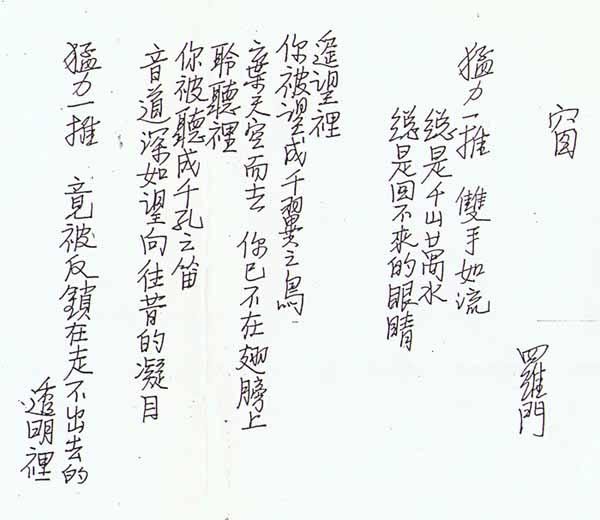 窗
羅門
猛力一推 雙手如流
總是千山萬水
總是回不來的眼睛
遙望裡
你被望成千翼之鳥
棄天空而去 你已不在翅膀上
聆聽裡
你被聽成千孔之笛
音道深如望向往昔的凝目
猛力一推 竟被反鎖在走不出去的
透明裡